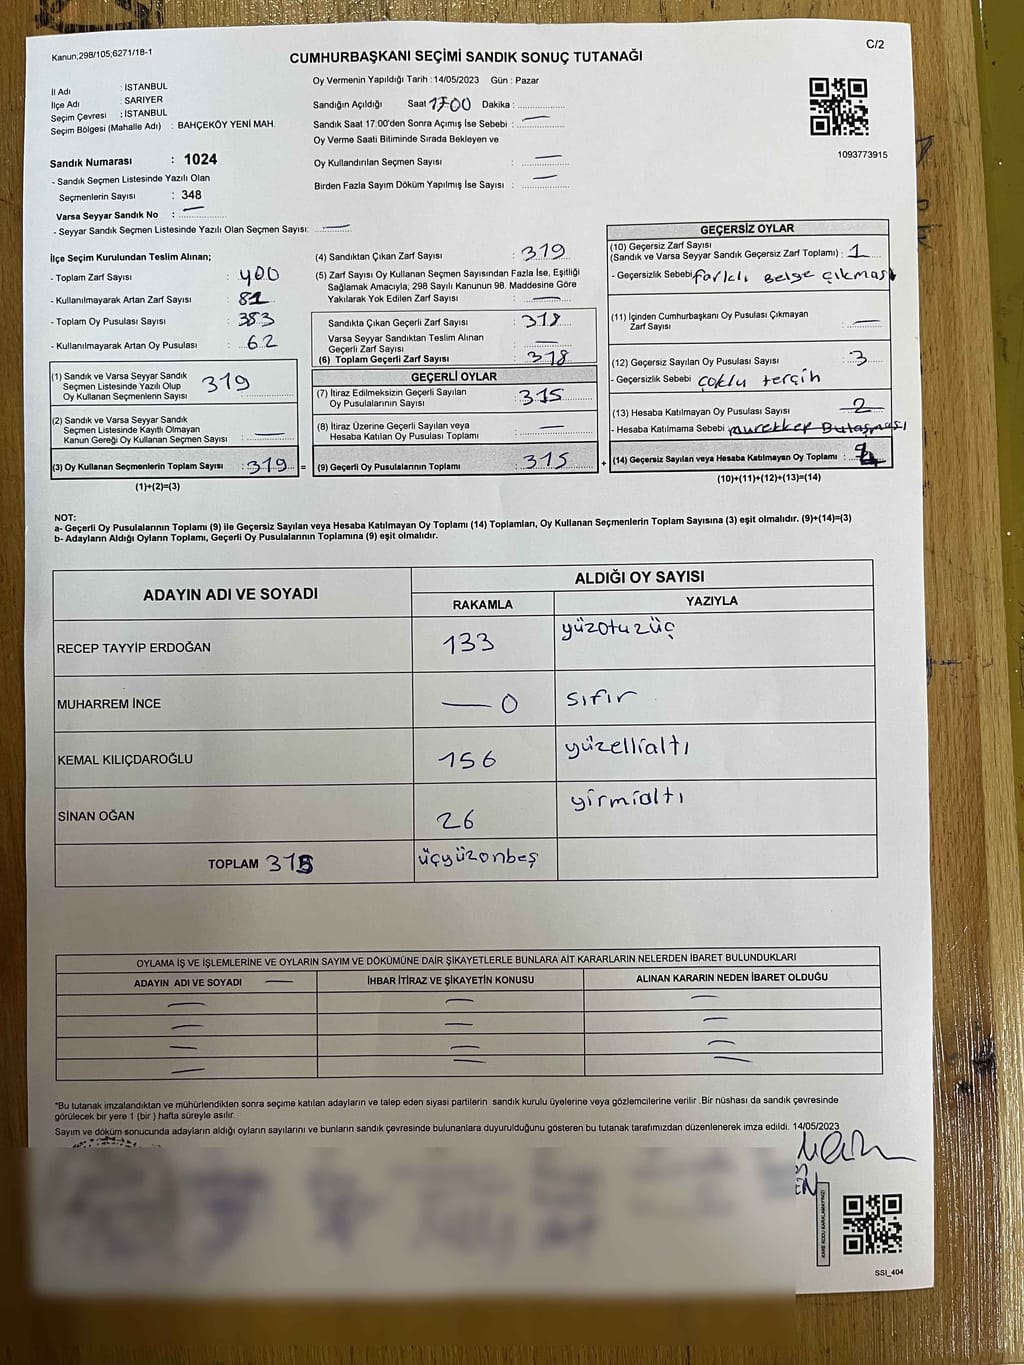 Kanun;298/105;6271/18-1
C/2
CUMHURBAŞKANI SEÇİMİ SANDIK SONUÇ TUTANAĞI
İl Adı : İSTANBUL
İlçe Adı : SARIYER
Seçim Çevresi : İSTANBUL
Seçim Bölgesi (Mahalle Adı) : BAHÇEKÖY YENİ MAH.
Sandık Numarası : 1024
- Sandık Seçmen Listesinde Yazılı Olan
Seçmenlerin Sayısı : 348
Varsa Seyyar Sandık No : —
- Seyyar Sandık Seçmen Listesinde Yazılı Olan Seçmen Sayısı: —
Oy Vermenin Yapıldığı Tarih : 14/05/2023 Gün : Pazar
Sandığın Açıldığı Saat 17:00 Dakika :
Sandık Saat 17:00'den Sonra Açımış İse Sebebi : —
Oy Verme Saati Bitiminde Sırada Bekleyen ve
Oy Kullandırılan Seçmen Sayısı : —
Birden Fazla Sayım Döküm Yapılmış İse Sayısı : —
1093773915
İlçe Seçim Kurulundan Teslim Alınan;
- Toplam Zarf Sayısı : 400
- Kullanılmayarak Artan Zarf Sayısı : 81
- Toplam Oy Pusulası Sayısı : 383
- Kullanılmayarak Artan Oy Pusulası : 62
(1) Sandık ve Varsa Seyyar Sandık
Seçmen Listesinde Yazılı Olup
Oy Kullanan Seçmenlerin Sayısı 319
(2) Sandık ve Varsa Seyyar Sandık
Seçmen Listesinde Kayıtlı Olmayan
Kanun Gereği Oy Kullanan Seçmen Sayısı : —
(3) Oy Kullanan Seçmenlerin Toplam Sayısı : 319 =
(1)+(2)=(3)
(4) Sandıktan Çıkan Zarf Sayısı : 319
(5) Zarf Sayısı Oy Kullanan Seçmen Sayısından Fazla İse, Eşitliği
Sağlamak Amacıyla; 298 Sayılı Kanunun 98. Maddesine Göre
Yakılarak Yok Edilen Zarf Sayısı : —
Sandıkta Çıkan Geçerli Zarf Sayısı : 318
Varsa Seyyar Sandıktan Teslim Alınan
Geçerli Zarf Sayısı : —
(6) Toplam Geçerli Zarf Sayısı : 318
GEÇERLİ OYLAR
(7) İtiraz Edilmeksizin Geçerli Sayılan
Oy Pusulalarının Sayısı : 315
(8) İtiraz Üzerine Geçerli Sayılan veya
Hesaba Katılan Oy Pusulası Toplamı : —
(9) Geçerli Oy Pusulalarının Toplamı : 315 +
GEÇERSİZ OYLAR
(10) Geçersiz Zarf Sayısı
(Sandık ve Varsa Seyyar Sandık Geçersiz Zarf Toplamı) : 1
- Geçersizlik Sebebi farklı belge çıkması
(11) İçinden Cumhurbaşkanı Oy Pusulası Çıkmayan
Zarf Sayısı : —
(12) Geçersiz Sayılan Oy Pusulası Sayısı : 3
- Geçersizlik Sebebi çoklu tercih
(13) Hesaba Katılmayan Oy Pusulası Sayısı : 2
- Hesaba Katılmama Sebebi mürekkep Bulaşması
(14) Geçersiz Sayılan veya Hesaba Katılmayan Oy Toplamı : 4
(10)+(11)+(12)+(13)=(14)
NOT:
a- Geçerli Oy Pusulalarının Toplamı (9) ile Geçersiz Sayılan veya Hesaba Katılmayan Oy Toplamı (14) Toplamları, Oy Kullanan Seçmenlerin Toplam Sayısına (3) eşit olmalıdır. (9)+(14)=(3)
b- Adayların Aldığı Oyların Toplamı, Geçerli Oy Pusulalarının Toplamına (9) eşit olmalıdır.
ADAYIN ADI VE SOYADI
ALDIĞI OY SAYISI
RAKAMLA YAZIYLA
RECEP TAYYİP ERDOĞAN 133 yüzotuzüç
MUHARREM İNCE — 0 sıfır
KEMAL KILIÇDAROĞLU 156 yüzellialtı
SİNAN OĞAN 26 yirmialtı
TOPLAM 315 üçyüzonbeş
OYLAMA İŞ VE İŞLEMLERİNE VE OYLARIN SAYIM VE DÖKÜMÜNE DAİR ŞİKAYETLERLE BUNLARA AİT KARARLARIN NELERDEN İBARET BULUNDUKLARI
ADAYIN ADI VE SOYADI — İHBAR İTİRAZ VE ŞİKAYETİN KONUSU ALINAN KARARIN NEDEN İBARET OLDUĞU
— — —
— — —
— — —
— — —
*Bu tutanak imzalandıktan ve mühürlendikten sonra seçime katılan adayların ve talep eden siyasi partilerin sandık kurulu üyelerine veya gözlemcilerine verilir .Bir nüshası da sandık çevresinde
görülecek bir yere 1 (bir ) hafta süreyle asılır.
Sayım ve döküm sonucunda adayların aldığı oyların sayılarını ve bunların sandık çevresinde bulunanlara duyurulduğunu gösteren bu tutanak tarafımızdan düzenlenerek imza edildi. 14/05/2023
KARE KODU KARALAMAYINIZ!
SSI_404